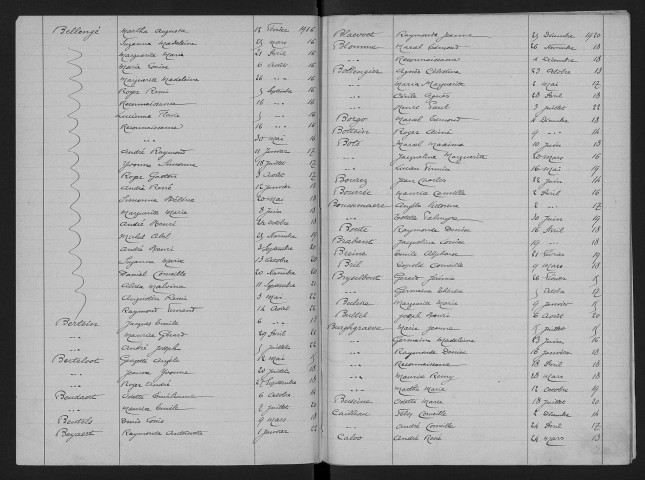 Bellengé Martha Augusta 18 Février 1916
Suzanne Madeleine 25 mars 16
Marguerite Marie 21 Avril 16
Marie Louise 6 Août 16
Marguerite Madeleine 26 " 16
Roger René 5 Septembre 16
Reconnaissance 16 " 16
Lucienne 5 " 16
Reconnaissance 16 " 16
" 30 mai 16
André Raymond 11 Janvier 17
Yvonne Simonne 18 Juillet 17
Roger Gaston 3 Août 17
André René 12 Janvier 18
Simonne Hélène 20 Mai 18
Marguerite Marie 8 Juin 18
André Henri 22 Octobre 18
Michel Abel 25 Novembre 19
André Henri 2 Septembre 20
Suzanne Marie 13 Octobre 20
Daniel Camille 20 Novembre 20
11 Septembre 21
Augustin René 3 Mai 22
Raymond Fernand 14 Août 22
Bertein Jacques Emile 6 " 18
Maurice Gérard 29 Avril 21
André Joseph 1 Juillet 22
Berteloot Angèle 12 Mai
Jeanne Yvonne 20 Juillet 18
Roger André 27 Septembre 18
Beudaert Odette Guislaine 6 Octobre 16
Maurice Emile 2 Juillet 20
Beutels Denis Louis 9 Mars 18
Beyaert Raymonde Antoinette 1 Janvier 22
Blawoet Raymonde Jeanne 25 Décembre 1920
Blomme Marcel Edmond 26 Novembre 18
" Reconnaissance 4 Décembre 18
Bollengier Agnès 23 Octobre 18
" Maria Marguerite 2 Mai 17
" Cécile Agnès 28 Avril 18
" Henri Paul 3 Juillet 22
Borgo Marcel Edmond 4 Décembre 18
Bottein Roger Aimé 9 " 16
Bots Marcel Maxime 10 Juin 13
" Jacqueline Marguerite 20 Mars 16
" Lucien Firmin 16 Mai 19
Bourez Jean Charles 28 Juin 16
Bourrée Maurice Camille 2 Avril 16
Angèle 2 " 17
" 30 Juin 19
Boute Raymonde Denise 16 Avril 18
Brabant Jacqueline Louise 19 " 18
Breine Emile Alphonse 21 Février 19
Bril Léopold Camille 9 Mars 18
Gérard Jérôme 26 Février
" Germaine 5 Octobre 17
Marguerite Marie 9 Janvier
Bultel Joseph Henri 6 Août 20
Burghgraeve Marie Jeanne Juillet
" Germaine Madeleine 23 Juin 16
" Raymonde Denise 16 Janvier 18
" Reconnaissance 18 Avril 18
" Maurice Rémy 28 Mars 18
" Marthe Marie 12 Octobre 19
Odette Marie 18 Juillet 20
Cailliau Camille 2 Décembre 16
" André Camille 24 Avril 17
Caloo André René 24 Mars 13